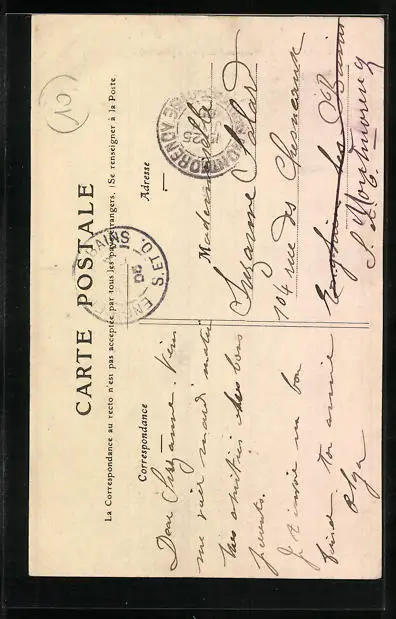 CARTE POSTALE
La Correspondance au recto n'est pas acceptée par tous les pays étrangers. (Se renseigner à la Poste.
Correspondance
Adresse
Dear Suzanne. Viens
me voir mardi matin
tes amitiés à tes bons
parents.
Je t'envoie un bon
ton amie
Olga
Mademoiselle
Suzanne
104 rue des
Enghien les Bains
Montmorency
S. et O.
MONTMORENCY
ENGHIEN LES BAINS
S. ET O.
10